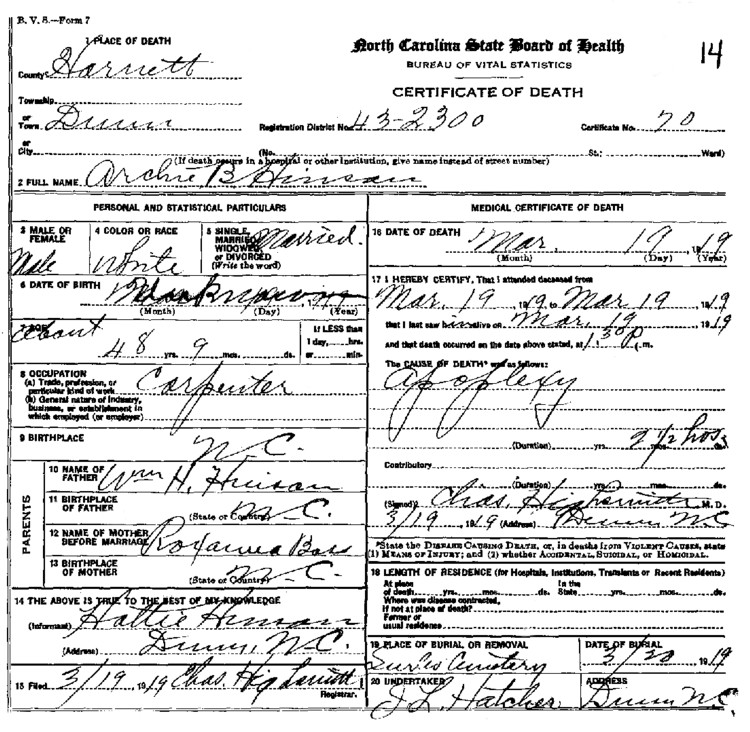 B. V. S.—Form 7
1 PLACE OF DEATH
North Carolina State Board of Health
14
County Harnett
BUREAU OF VITAL STATISTICS
CERTIFICATE OF DEATH
Township
or Town Dunn
Registration District No. 43-2300
Certificate No. 70
or City
(No. St.; Ward)
(If death occurs in a hospital or other institution, give name instead of street number)
2 FULL NAME Archie B Hinson
PERSONAL AND STATISTICAL PARTICULARS
3 MALE OR FEMALE
Male
4 COLOR OR RACE
White
5 SINGLE, MARRIED, WIDOWED, or DIVORCED
(Write the word)
Married.
6 DATE OF BIRTH
(Month) (Day) (Year)
7 AGE
About 48 yrs. 9 mos. ds.
If LESS than
1 day, hrs.
or min.
8 OCCUPATION
(a) Trade, profession, or
particular kind of work
Carpenter
(b) General nature of industry,
business, or establishment in
which employed (or employer)
9 BIRTHPLACE
N.C.
PARENTS
10 NAME OF FATHER
Wm H. Hinson
11 BIRTHPLACE OF FATHER
(State or Country) N.C.
12 NAME OF MOTHER BEFORE MARRIAGE
13 BIRTHPLACE OF MOTHER
(State or Country) N.C.
14 THE ABOVE IS TRUE TO THE BEST OF MY KNOWLEDGE
(Informant) Hattie Hinson
(Address) Dunn, N.C.
15 Filed 3/19, 1919 Chas. Highsmith
Registrar.
MEDICAL CERTIFICATE OF DEATH
16 DATE OF DEATH
Mar. 19 1919
(Month) (Day) (Year)
17 I HEREBY CERTIFY, That I attended deceased from
Mar. 19, 1919, to Mar 19, 1919
that I last saw him alive on Mar. 19, 1919
and that death occurred on the date above stated, at 1:30 P.m.
The CAUSE OF DEATH* was as follows:
Apoplexy
(Duration) yrs. 2 1/2 hos. ds.
Contributory
(Duration) yrs. mos. ds.
(Signed) Chas. Highsmith M. D.
3/19, 1919 (Address) Dunn N.C
*State the DISEASE CAUSING DEATH, or, in deaths from VIOLENT CAUSES, state
(1) MEANS OF INJURY; and (2) whether ACCIDENTAL, SUICIDAL, or HOMICIDAL.
18 LENGTH OF RESIDENCE (for Hospitals, Institutions, Transients or Recent Residents)
At place of death yrs. mos. ds. In the State yrs. mos. ds.
Where was disease contracted,
If not at place of death?
Former or
usual residence
19 PLACE OF BURIAL OR REMOVAL
Cemetery
DATE OF BURIAL
3/20, 1919
20 UNDERTAKER
J L Hatcher
ADDRESS
Dunn N.C.